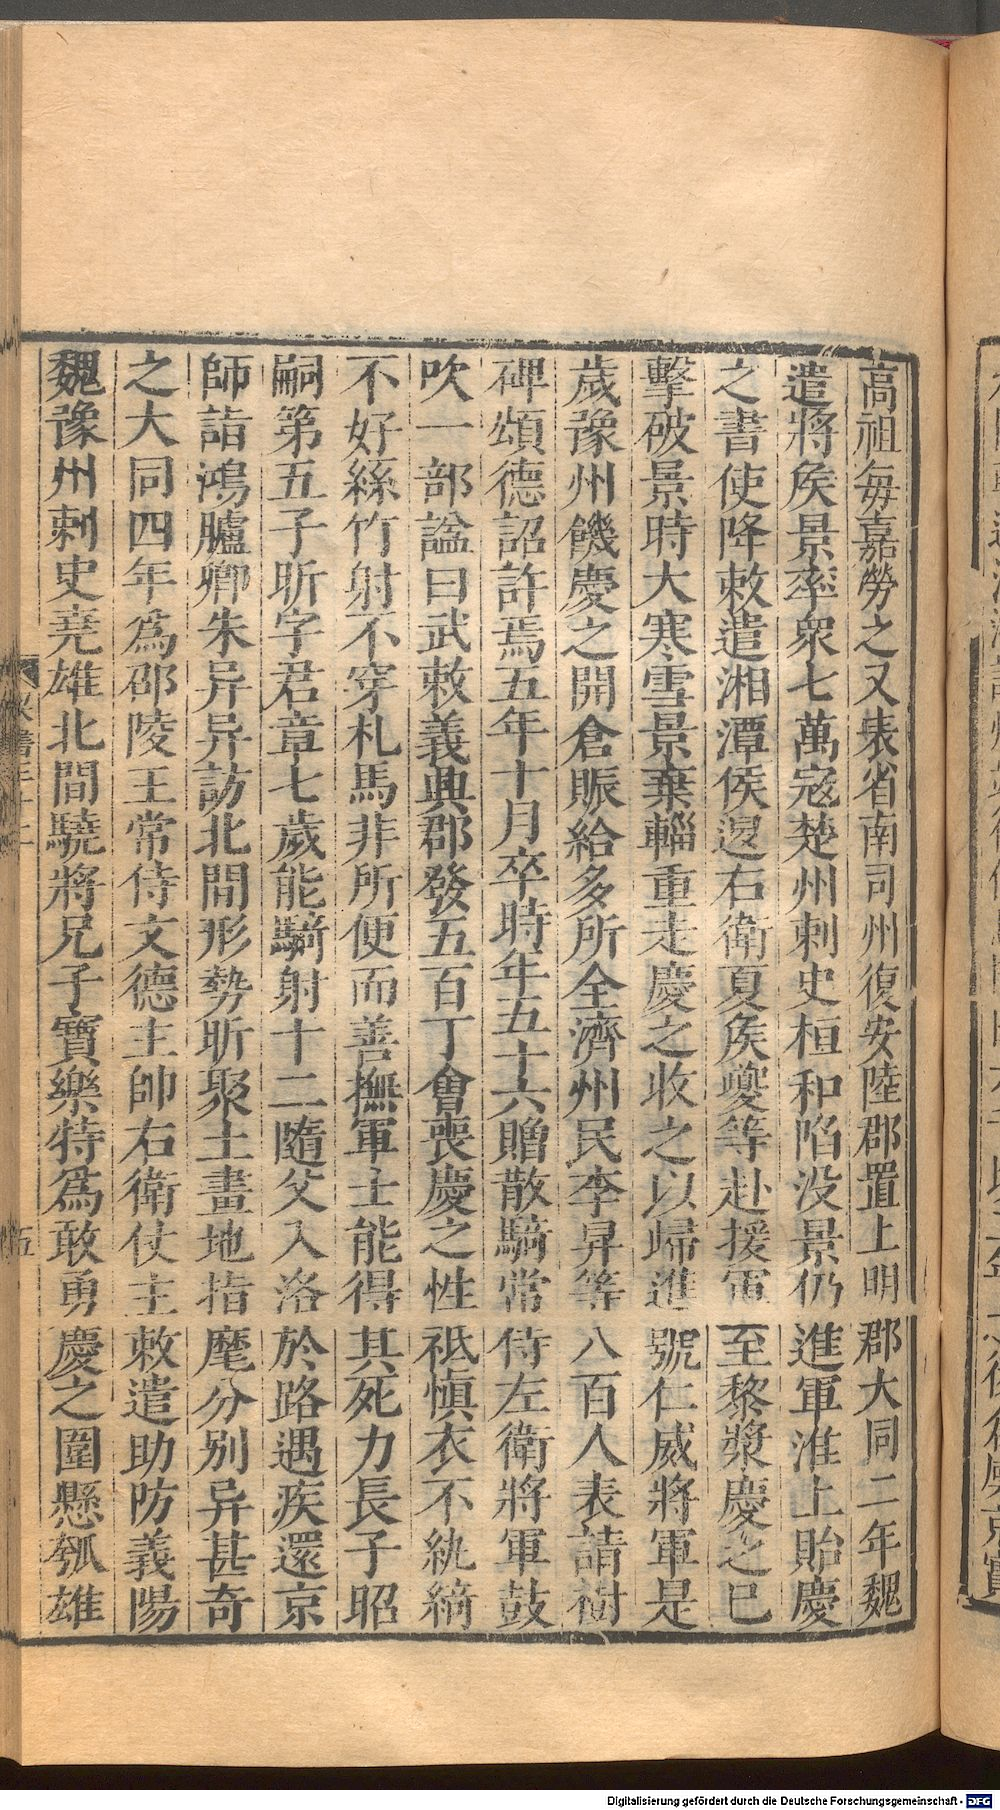 高祖每嘉勞之又表省南司州復安陸郡置上明郡大同二年魏
遣將侯景率衆七萬寇楚州刺史桓和陷没景仍進軍淮上貽慶
之書使降敕遣湘潭侯退右衛夏侯夔等赴援軍至黎漿慶之已
擊破景時大寒雪景棄輜重走慶之收之以歸進號仁威將軍是
歲豫州饑慶之開倉賑給多所全濟州民李昇等八百人表請樹
碑頌德詔許焉五年十月卒時年五十六贈散騎常侍左衛將軍鼓
吹一部諡曰武敕義興郡發五百丁會喪慶之性祗慎衣不紈綺
不好絲竹射不穿札馬非所便而善撫軍士能得其死力長子昭
嗣第五子昕字君章七歲能騎射十二隨父入洛於路遇疾還京
師詣鴻臚卿朱异异訪北間形勢昕聚土畫地指麾分別异甚奇
之大同四年爲邵陵王常侍文德主帥右衛仗主敕遣助防義陽
魏豫州刺史堯雄北間驍將兄子寶樂特爲敢勇慶之圍懸瓠雄
五
Digitalisierung gefördert durch die Deutsche Forschungsgemeinschaft - DFG